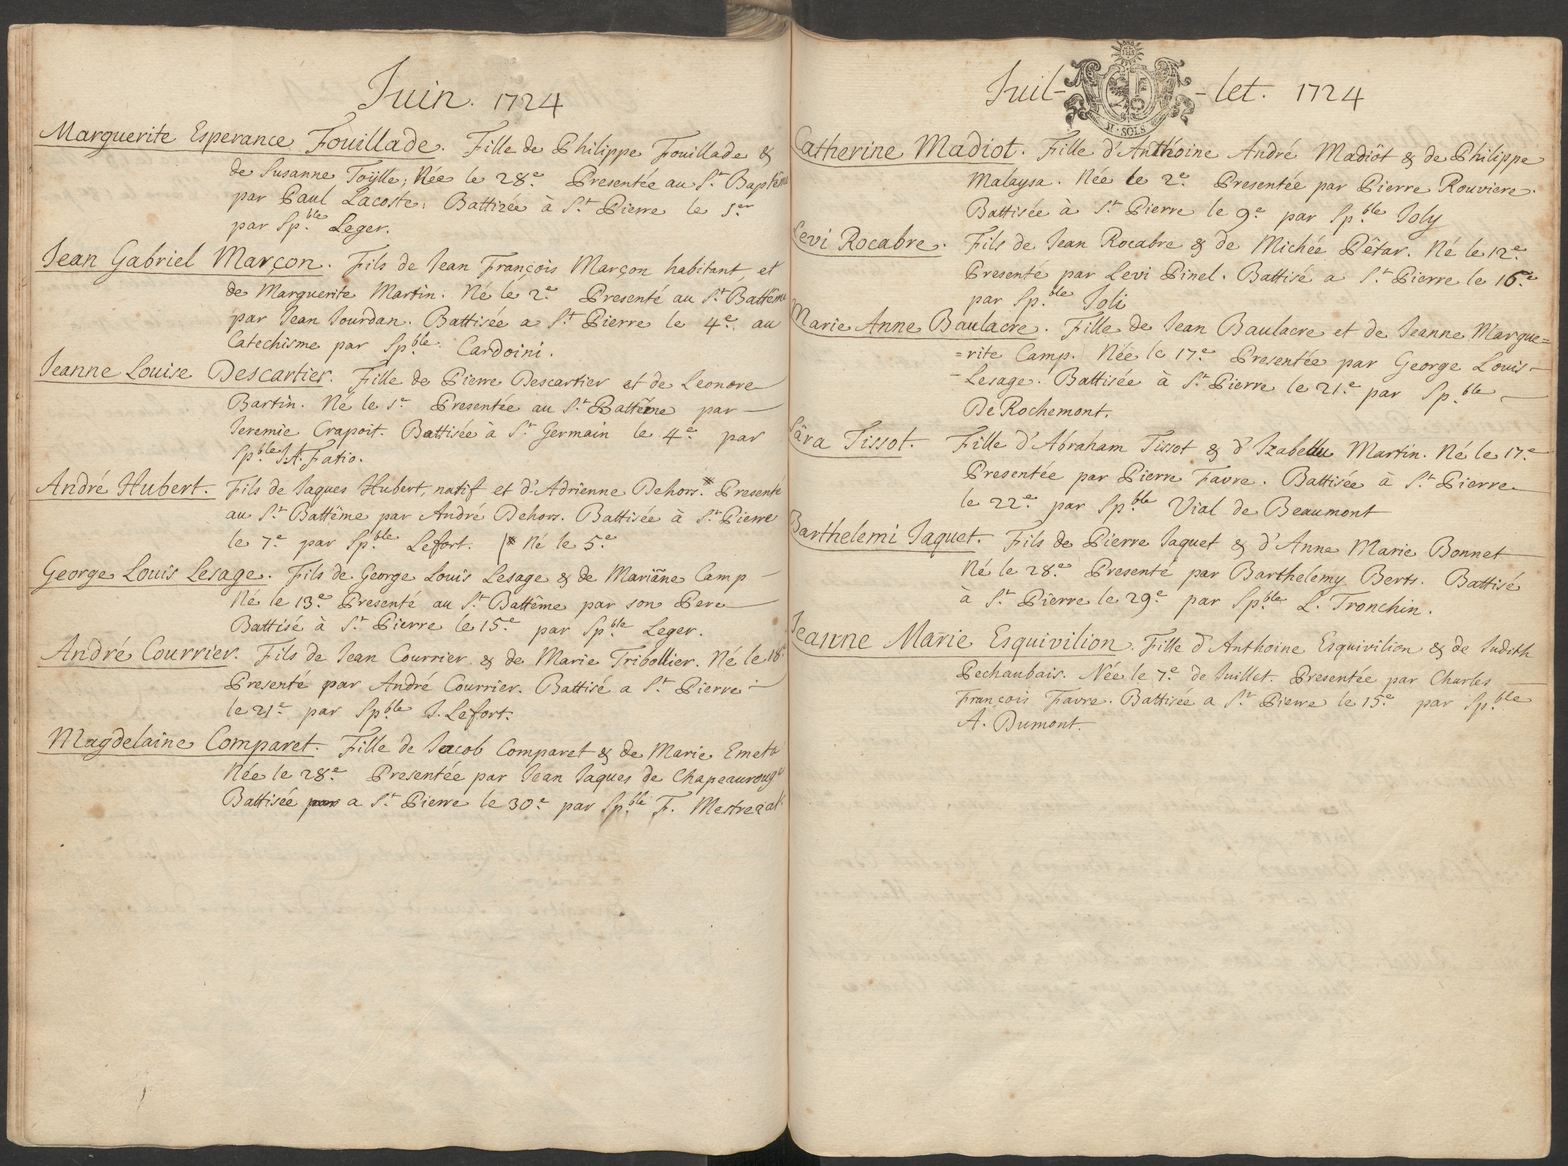 Juin. 1724
Marguerite Esperance Fouillade. Fille de Philippe Fouillade &
de Susanne Toÿlle; Née le 28.e Presentée au S.t Baptême
par Paul Lacoste. Battizée à S.t Pierre le 5.er
par Sp.ble Leger.
Jean Gabriel Marçon. Fils de Jean François Marçon habitant et
de Marguerite Martin. Né le 2.e Presenté au S.t Battême
par Jean Jourdan. Battisée a S.t Pierre le 4.e au
Catechisme par Sp.ble Cardoini.
Jeanne Louise Descartier. Fille de Pierre Descartier et de Leonore
Bartin. Né le 1.e Presentée au S.t Battême par
Jeremie Crapoit. Battisée à S.t Germain le 4.e par
Sp.ble J.A. Fatio.
André Hubert. Fils de Jaques Hubert, natif et d'Adrienne Dehors.* Presenté
au S.t Battême par André Dehors. Battisée à S.t Pierre
le 7.e par Sp.ble Lefort. (* Né le 5.e
George Louis Lesage. Fils de George Louis Lesage & de Mariañe Camp
Né le 13.e Presenté au S.t Battême par son Pere
Battisé à S.t Pierre le 15.e par Sp.ble Leger.
André Courrier. Fils de Jean Courrier & de Marie Tribollier. Né le 18.e
Presenté par André Courrier. Battisé a S.t Pierre
le 21.e par Sp.ble J. Lefort.
Magdelaine Comparet. Fille de Jacob Comparet & de Marie Emet
Née le 28.e Presentée par Jean Jaques de Chapeaurouge
Battisée a S.t Pierre le 30.e par Sp.ble F. Mestrezat
Juil- -let. 1724
II. SOLS
Catherine Madiot. Fille d'Anthoine André Madiot & de Philippe
Malaysa. Née le 2.e Presentée par Pierre Rouviere.
Battisée à S.t Pierre le 9.e par Sp.ble Joly
Levi Rocabre. Fils de Jean Rocabre & de Michée Pêtar. Né le 12.e
Presenté par Levi Pinel. Battisé a S.t Pierre le 16.e
par Sp.ble Joli
Marie Anne Baulacre. Fille de Jean Baulacre et de Jeanne Margue=
=rite Camp. Née le 17.e Presentée par George Louis
Lesage. Battisée à S.t Pierre le 21.e par Sp.ble
De Rochemont.
Sára Tissot. Fille d'Abraham Tissot & d'Izabelle Martin. Né le 17.e
Presentée par Pierre Favre. Battisée à S.t Pierre
le 22.e par Sp.ble Vial de Beaumont
Barthelemi Jaquet. Fils de Pierre Jaquet & d'Anne Marie Bonnet
Né le 28.e Presenté par Barthelemy Berts. Battisé
a S.t Pierre le 29.e par Sp.ble L. Tronchin.
Jeanne Marie Esquivilion. Fille d'Anthoine Esquivilion & de Judith
Pechaubais. Née le 7.e de Juillet. Presentée par Charles
François Favre. Battisée a S.t Pierre le 15.e par Sp.ble
A. Dumont.